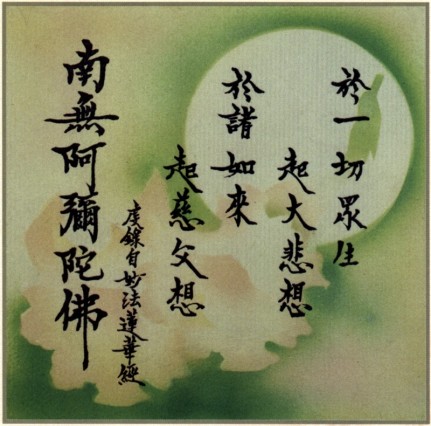 於一切眾生
起大悲想
於諸如來
起慈父想
虔錄自妙法蓮華經
南無阿彌陀佛